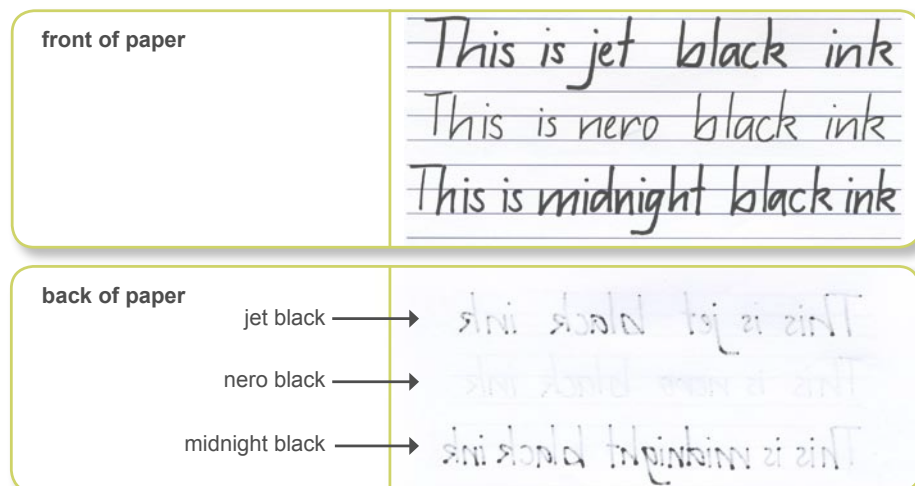 front of paper
This is jet black ink
This is nero black ink
This is midnight black ink
back of paper
jet black
This is jet black ink
nero black
This is nero black ink
midnight black
This is midnight black ink